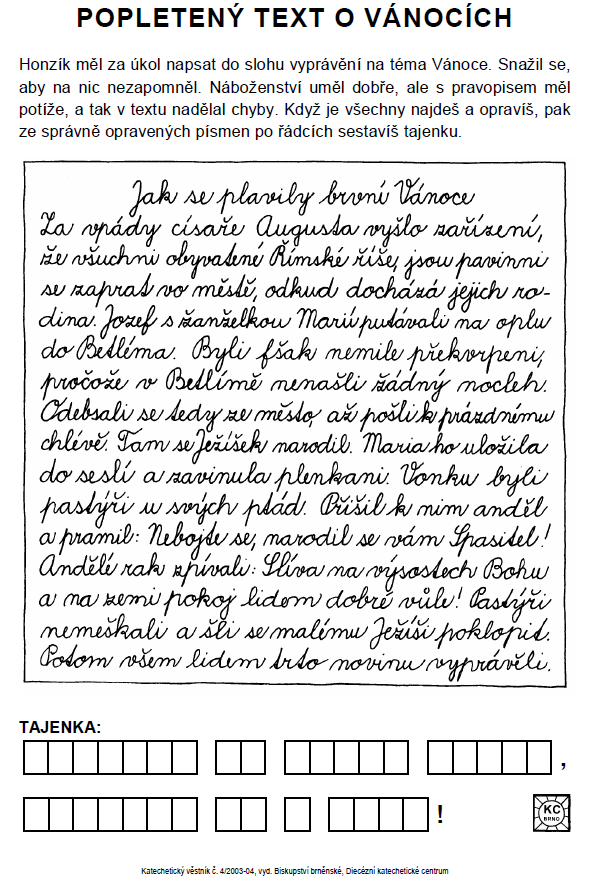 POPLETENÝ TEXT O VÁNOCÍCH
Honzík měl za úkol napsat do slohu vyprávění na téma Vánoce. Snažil se,
aby na nic nezapomněl. Náboženství uměl dobře, ale s pravopisem měl
potíže, a tak v textu nadělal chyby. Když je všechny najdeš a opravíš, pak
ze správně opravených písmen po řádcích sestavíš tajenku.
Jak se plavily brvní Vánoce
Za vpády císaře Augusta vyšlo zařízení,
že všuchni obyvatené Římské říše, jsou pavinni
se zaprat vo městě, odkud dochází jejich ro-
dina. Jozef s žanželkou Marií putávali na oplu
do Betléma. Byli fšak nemile překvrpeni,
pročože v Betlímě nenašli žádný nocleh.
Odebsali se tedy ze město, až pošli k prázdnému
chlévě. Tam se Ježíšek narodil. Maria ho uložila
do seslí a zavinula plenkani. Vonku byli
pastýři u svých ptád. Přišil k nim anděl
a pramil: Nebojte se, narodil se vám Spasitel!
Andělé rak zpívali: Slíva na výsostech Bohu
a na zemi pokoj lidem dobré vůle! Pastýři
nemeškali a šli se malému Ježíši poklopit.
Potom všem lidem trto novinu vyprávěli.
TAJENKA:
,
!
KC
BRNO
Katechetický věstník č. 4/2003-04, vyd. Biskupství brněnské, Diecézní katechetické centrum